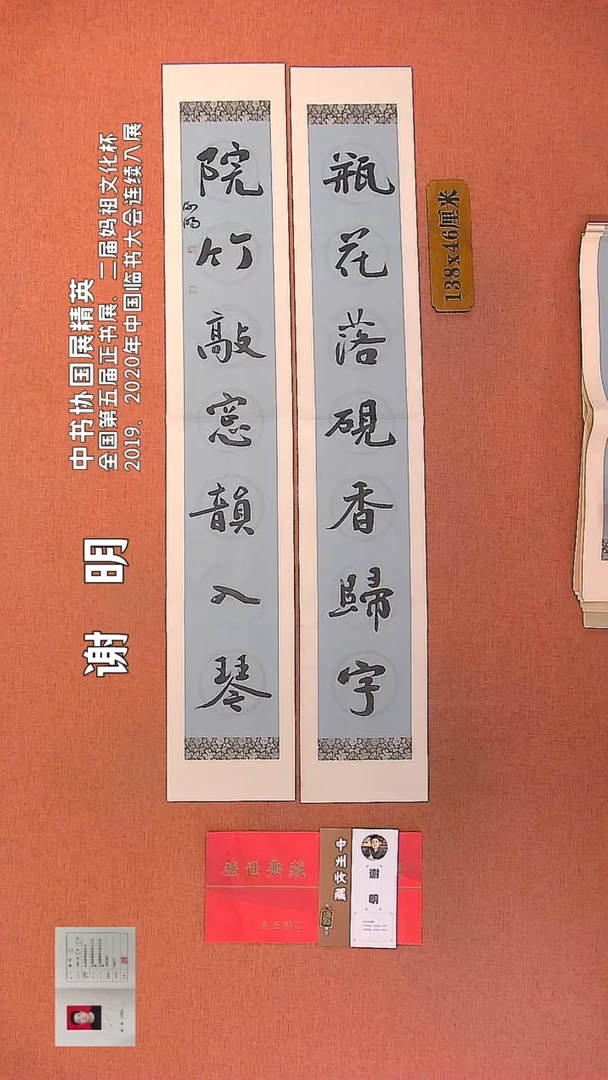 瓶花落硯香歸字
院竹敲窓韻入琴
谢明
中书协国展精英
全国第五届正书展、二届妈祖文化杯
2019、2020年中国临书大会连续入展
138x46厘米
中州收藏
谢明